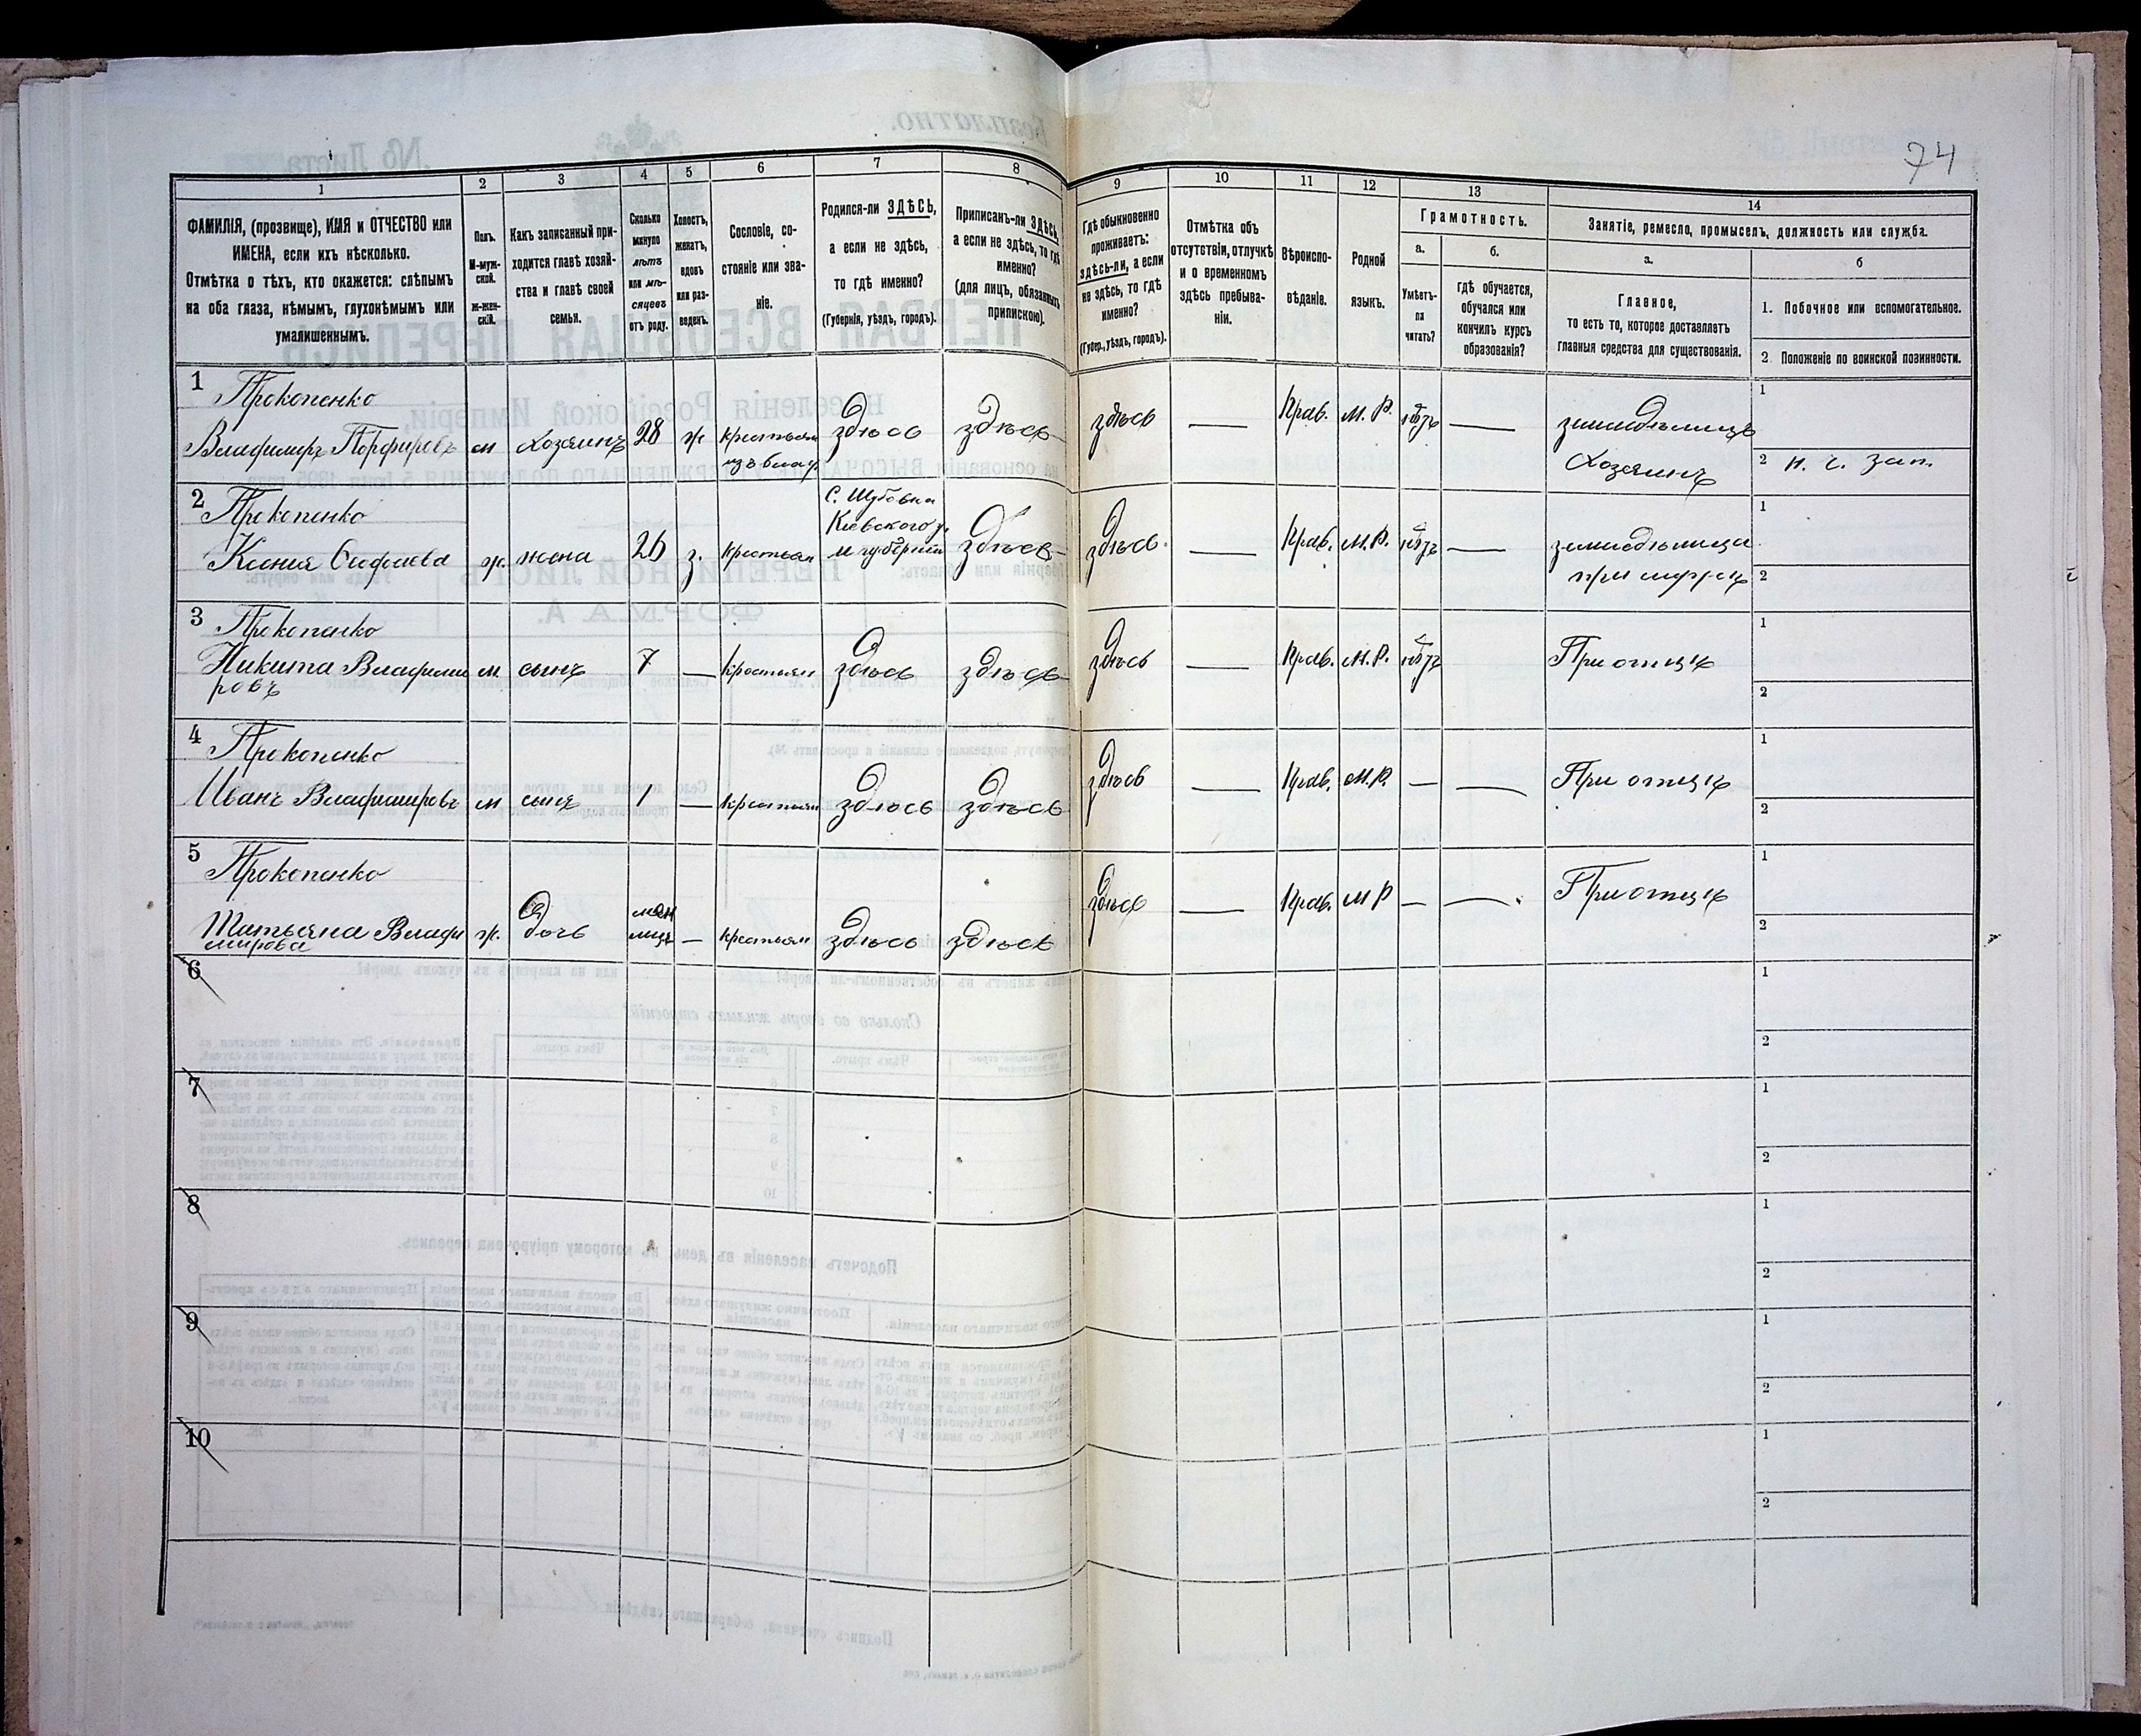 74
1
2
3
4
5
6
7
8
ФАМИЛІЯ, (прозвище), ИМЯ и ОТЧЕСТВО или
ИМЕНА, если ихъ нѣсколько.
Отмѣтка о тѣхъ, кто окажется: слѣпымъ
на оба глаза, нѣмымъ, глухонѣмымъ или
умалишеннымъ.
Полъ.
М-муж-
ской.
Ж-жен-
скій.
Какъ записанный при-
ходится главѣ хозяй-
ства и главѣ своей
семьи.
Сколько
минуло
лѣтъ
или мѣ-
сяцевъ
отъ роду.
Холостъ,
женатъ,
вдовъ
или раз-
веденъ.
Сословіе, со-
стояніе или зва-
ніе.
Родился-ли ЗДѢСЬ,
а если не здѣсь,
то гдѣ именно?
(Губернія, уѣздъ, городъ).
Приписанъ-ли ЗДѢСЬ,
а если не здѣсь, то гдѣ
именно?
(для лицъ, обязанныхъ
припискою).
9
10
11
12
13
14
Гдѣ обыкновенно
проживаетъ:
здѣсь-ли, а если
не здѣсь, то гдѣ
именно?
(Губер., уѣздъ, городъ).
Отмѣтка объ
отсутствіи, отлучкѣ
и о временномъ
здѣсь пребыва-
ніи.
Вѣроиспо-
вѣданіе.
Родной
языкъ.
Грамотность.
а.
б.
Умѣетъ-
ли
читать?
гдѣ обучается,
обучался или
кончилъ курсъ
образованія?
Занятіе, ремесло, промыселъ, должность или служба.
а.
б
Главное,
то есть то, которое доставляетъ
главныя средства для существованія.
1. Побочное или вспомогательное.
2. Положеніе по воинской повинности.
1 Прокопенко
Владиміръ Порфировъ м хозяинъ 28 ж крестьян здѣсь здѣсь здѣсь — Прав. М. Р. нѣтъ — земледѣлецъ
хозяинъ
1
2
2 Прокопенко
Ксенія м жена 26 з. крестьян
Кіевского у.
и губерніи здѣсь здѣсь — Прав. М.Р. нѣтъ —
1
2
3 Прокопенко
Никита Владими
ровъ м. сынъ 7 — крестьян здѣсь здѣсь здѣсь — Прав. М.Р. нѣтъ При отцѣ
1
2
4 Прокопенко
Иванъ Владиміровъ м сынъ 1 — крестьян здѣсь здѣсь здѣсь — Прав. М.Р. — — При отцѣ
1
2
5 Прокопенко
Татьяна Влади
мирова ж. дочь — крестьян здѣсь здѣсь здѣсь — Прав. М Р — — При отцѣ
1
2
6
1
2
7
1
2
8
1
2
9
1
2
10
1
2